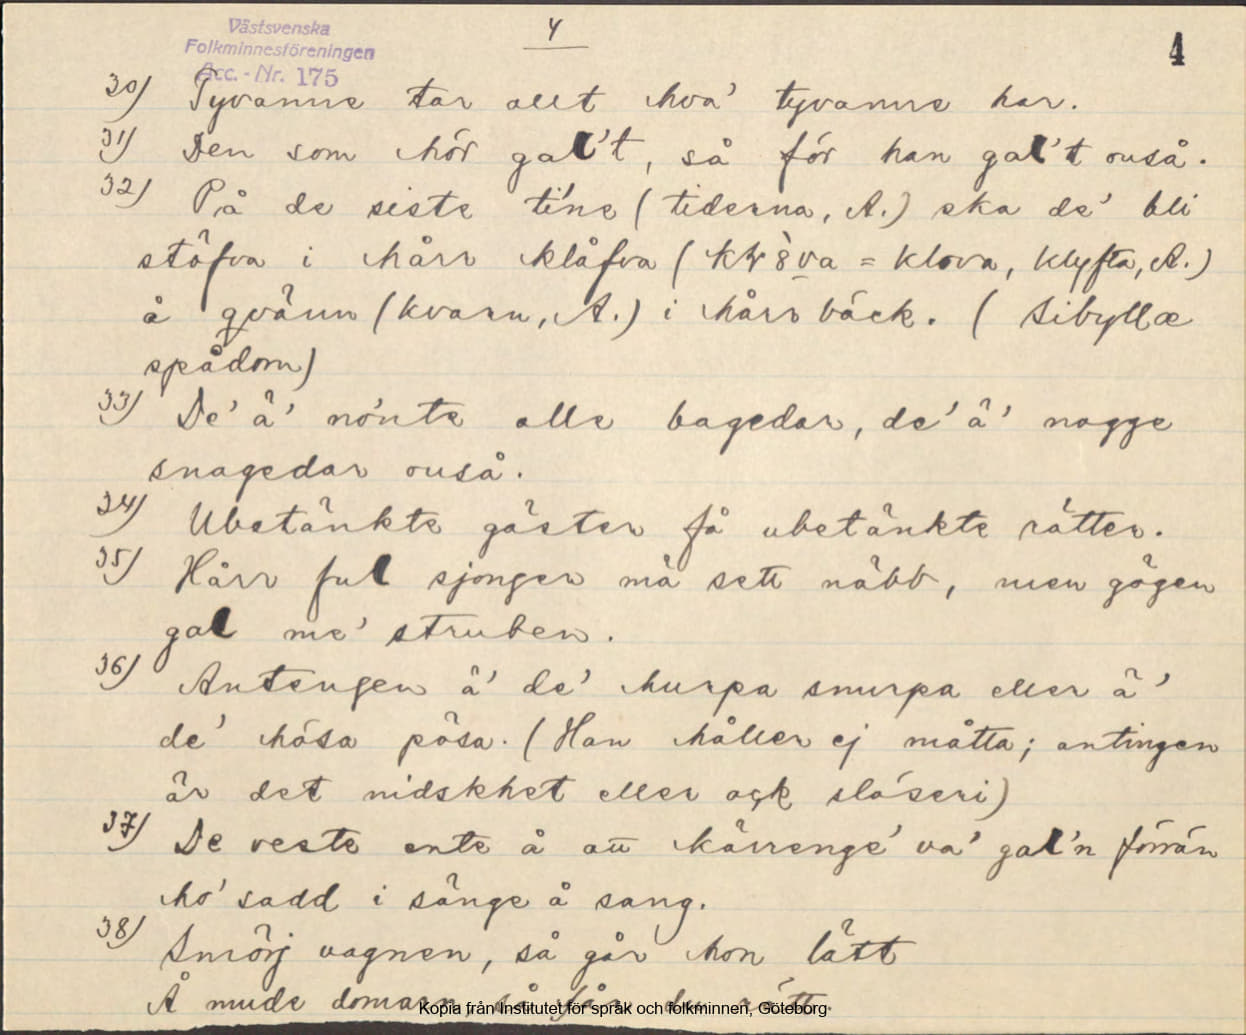 Västsvenska
Folkminnesföreningen
Acc. - Nr. 175
4
4
30) Tyvanne tar allt hva' tyvanne har.
31) Den som hör gal't, så för han gal't ouså.
32) På de siste ti'ne (tiderna, A.) ska de' bli
stöfva i hårr klåfva ( = klova, klyfta, A.)
å qvänn (kvarn, A.) i hårr bäck. (Sibyllæ
spådom)
33) De' ä' no'nte alle bagedar, de' ä' nagge
snagedar ouså.
34) Ubetänkte gäster få ubetänkte rätter.
35) Hårr ful sjonger mä sett näbb, men gögen
gal me' struben.
36) Antengen ä' de' hurpa snurpa eller ä'
de' hösa pösa. (Han håller ej måtta; antingen
är det nidskhet eller ock slöseri)
37) De veste ente å att kärrenge' va' gal'n förrän
ho' sadd i sänge å sang.
38) Smörj vagnen, så går hon lätt
Å mude domarn, så får du rätt.
Kopia från Institutet för språk och folkminnen, Göteborg